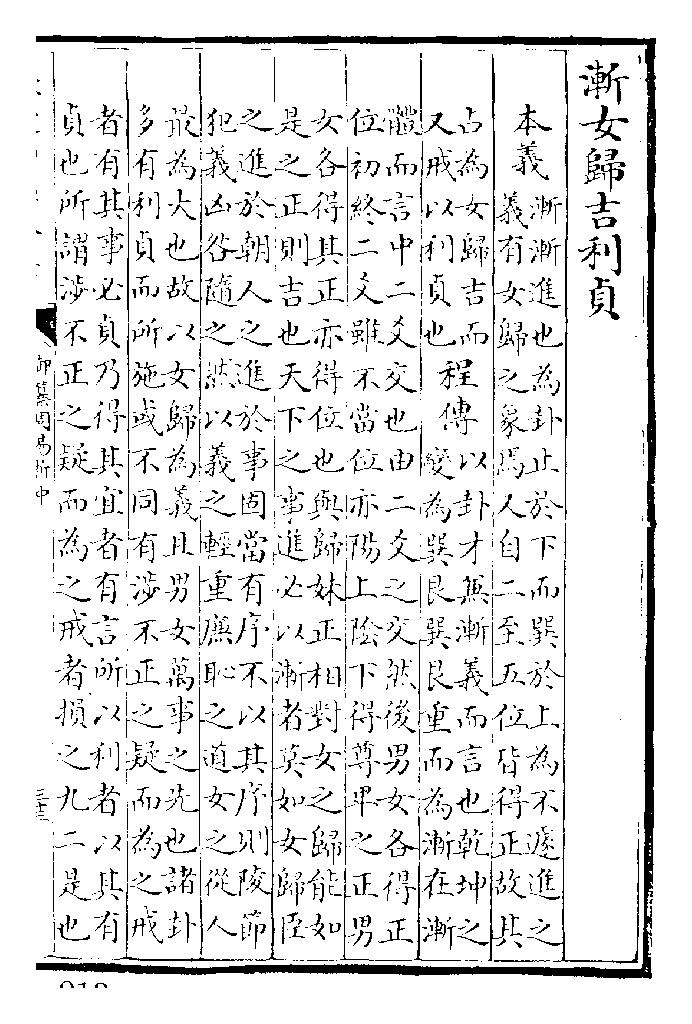 漸女歸吉利貞
本義
漸漸進也為卦止於下而巽於上為不遽進之
義有女歸之象焉人自二至五位皆得正故其
占為女歸吉而
又戒以利貞也
程傳
以卦才兼漸義而言也乾坤之
變為巽艮巽艮重而為漸在漸
體而言中二爻交也由二爻之交然後男女各得正
位初終二爻雖不當位亦陽上陰下得尊卑之正男
女各得其正亦得位也與歸妹正相對女之歸能如
是之正則吉也天下之事進必以漸者莫如女歸臣
之進於朝人之進於事固當有序不以其序則陵節
犯義凶咎隨之然以義之輕重廉恥之道女之從人
最為大也故以女歸為義且男女萬事之先也諸卦
多有利貞而所施或不同有涉不正之疑而為之戒
者有其事必貞乃得其宜者有言所以利者以其有
貞也所謂涉不正之疑而為之戒者損之九二是也
御纂周易折中